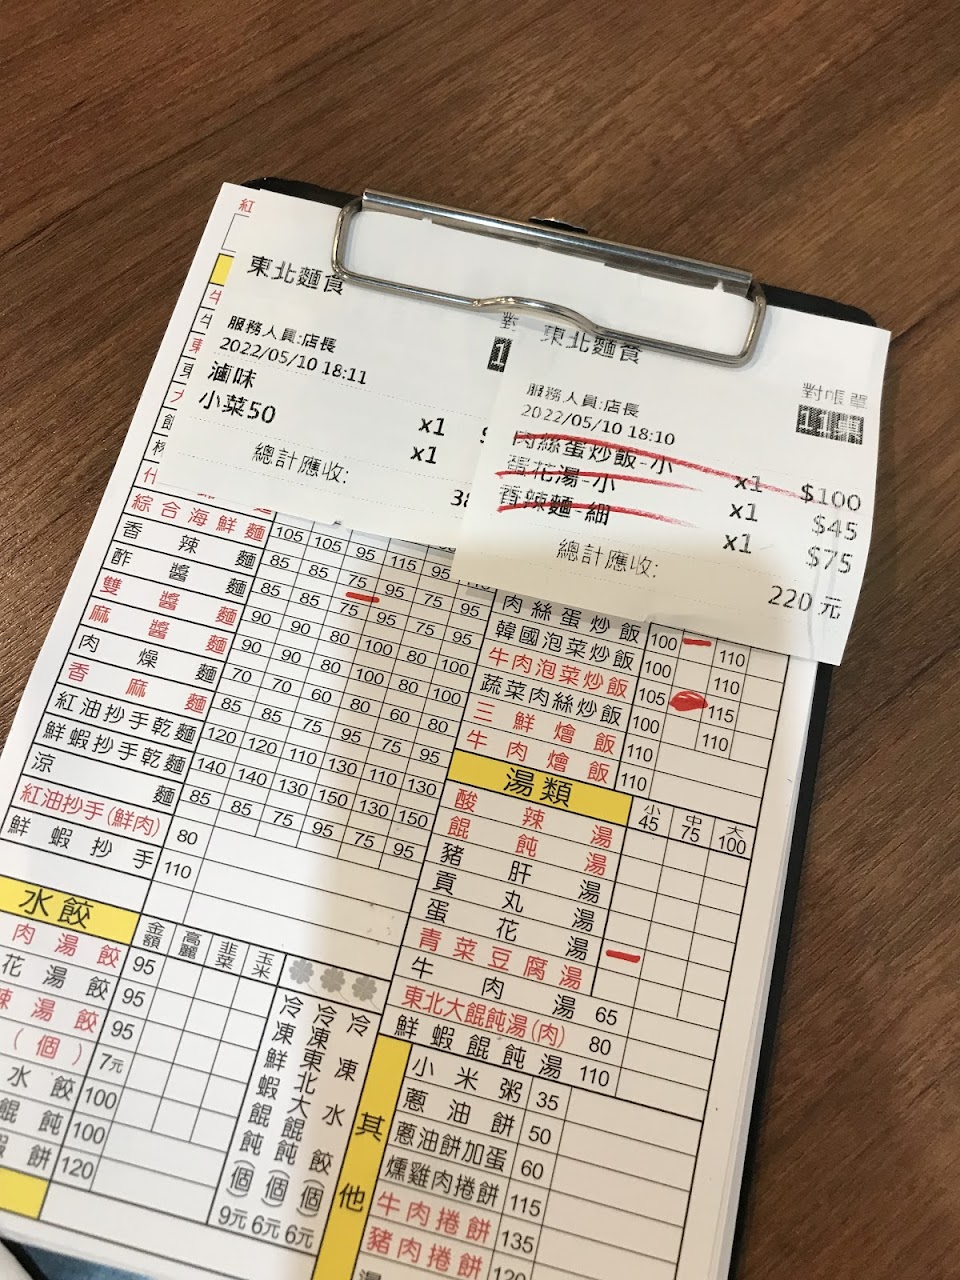 紅
東北麵食
對
服務人員:店長
2022/05/10 18:11
滷味 x1
小菜50 x1
總計應收: 38
東北麵食
對帳單
服務人員:店長
2022/05/10 18:10
肉絲蛋炒飯-小 x1 $100
蛋花湯-小 x1 $45
香辣麵-細 x1 $75
總計應收: 220元
綜合海鮮麵 105 105 95 115 95
香辣麵 85 85 75 95 75 95
酢醬麵 85 85 75 95 75 95
雙醬麵 90 90 80 100 80 100
麻醬麵 90 90 80 100 80 100
肉燥麵 70 70 60 80 60 80
香麻麵 85 85 75 95 75 95
紅油抄手乾麵 120 120 110 130 110 130
鮮蝦抄手乾麵 140 140 130 150 130 150
涼麵 85 85 75 95 75 95
紅油抄手(鮮肉) 80
鮮蝦抄手 110
肉絲蛋炒飯 100 110
韓國泡菜炒飯 100 110
牛肉泡菜炒飯 105 115
蔬菜肉絲炒飯 100 110
三鮮燴飯 110
牛肉燴飯 110
湯類 小45 中75 大100
酸辣湯
餛飩湯
豬肝湯
貢丸湯
蛋花湯
青菜豆腐湯
牛肉湯 65
東北大餛飩湯(肉) 80
鮮蝦餛飩湯 110
水餃 金額 高麗 韭菜 玉米
肉湯餃 95
花湯餃 95
辣湯餃 95
(個) 7元
水餃 100
餛飩 100
餅 120
冷凍水餃(個) 6元
冷凍東北大餛飩(個) 6元
冷凍鮮蝦餛飩(個) 9元
其他
小米粥 35
蔥油餅 50
蔥油餅加蛋 60
燻雞肉捲餅 115
牛肉捲餅 135
豬肉捲餅 120